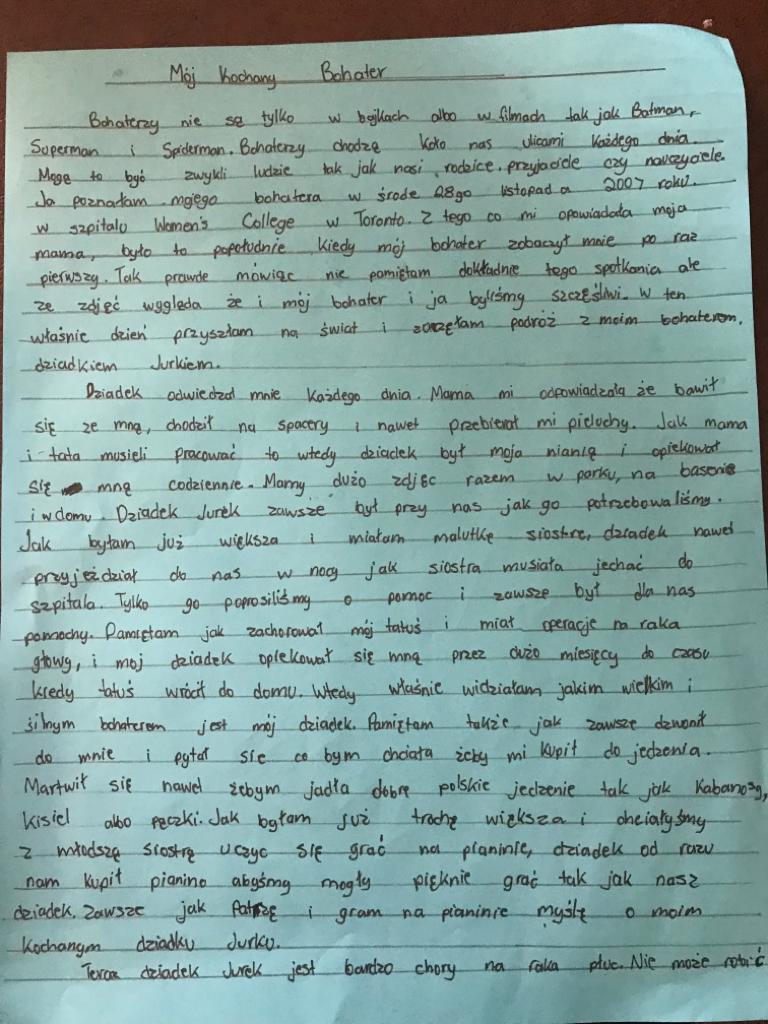 Mój Kochany Bohater
Bohaterzy nie są tylko w bajkach albo w filmach tak jak Batman,
Superman i Spiderman. Bohaterzy chodzą koło nas ulicami każdego dnia.
Mogą to być zwykli ludzie tak jak nasi rodzice, przyjaciele czy nauczyciele.
Ja poznałam mojego bohatera w środe 28go listopada 2007 roku.
w szpitalu Women's College w Toronto. Z tego co mi opowiadała moja
mama, było to popołudnie kiedy mój bohater zobaczył mnie po raz
pierwszy. Tak prawde mówiąc nie pamiętam dokładnie tego spotkania ale
ze zdjęć wygląda że i mój bohater i ja byliśmy szczęśliwi. W ten
właśnie dzień przyszłam na świat i zaczęłam podróż z moim bohaterem,
dziadkiem Jurkiem.
Dziadek odwiedzał mnie każdego dnia. Mama mi odpowiadzała że bawił
się ze mną, chodził na spacery i nawet przebierał mi pieluchy. Jak mama
i tata musieli pracować to wtedy dziadek był moja nianią i opiekował
się mną codziennie. Mamy dużo zdjęc razem w parku, na basenie
i w domu. Dziadek Jurek zawsze był przy nas jak go potrzebowaliśmy.
Jak byłam już większa i miałam malutkę siostre, dziadek nawet
przyjeżdział do nas w nocy jak siostra musiała jechać do
szpitala. Tylko go poprosiliśmy o pomoc i zawsze był dla nas
pomochy. Pamiętam jak zachorował mój tatuś i miał operacje na raka
głowy, i moj dziadek opiekował się mną przez dużo miesięcy do czasu
kiedy tatuś wrócił do domu. Wtedy właśnie widziałam jakim wielkim i
silnym bohaterem jest mój dziadek. Pamiętam także jak zawsze dzwonił
do mnie i pytał sie co bym chciała żeby mi kupił do jedzenia.
Martwił się nawet żebym jadła dobrę polskie jedzenie tak jak kabanosy,
kisiel albo pączki. Jak byłam już trochę większa i chciałyśmy
z młodszą siostrą uczyc się grać na pianinie, dziadek od razu
nam kupił pianino abyśmy mogły pięknie grać tak jak nasz
dziadek. Zawsze jak patrzę i gram na pianinie myślę o moim
kochanym dziadku Jurku.
Teraz dziadek Jurek jest bardzo chory na raka płuc. Nie może robić